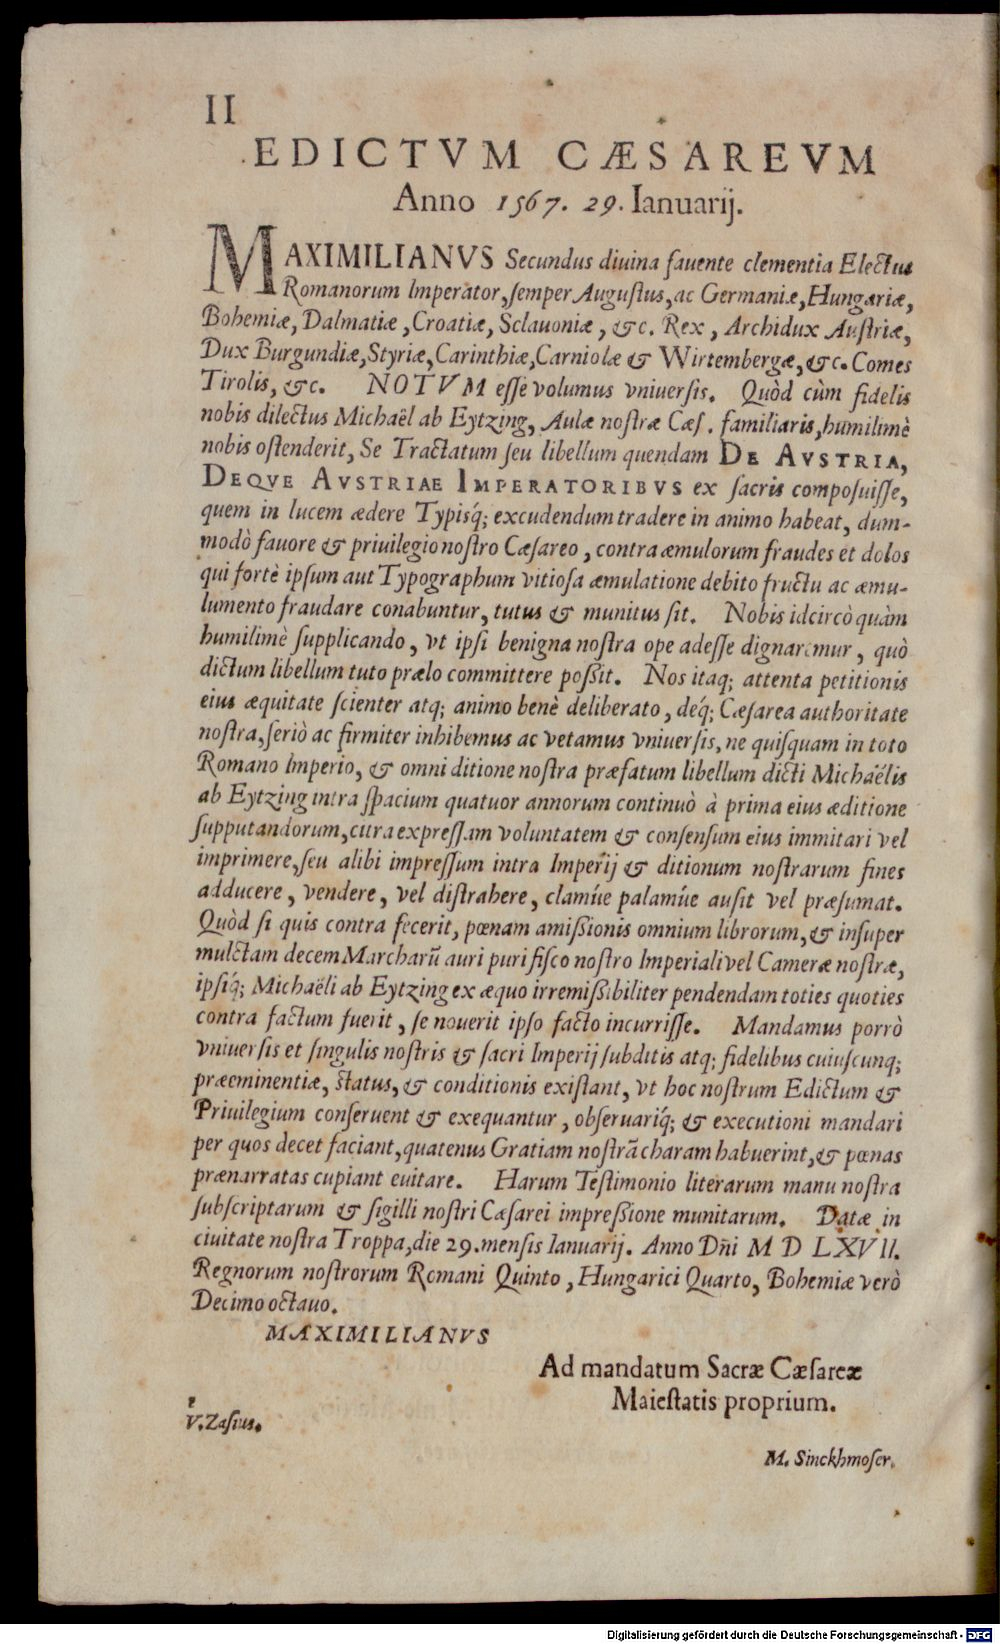 II
EDICTVM CÆSAREVM
Anno 1567. 29. Ianuarij.
MAXIMILIANVS Secundus diuina fauente clementia Electus
Romanorum Imperator, semper Augustus, ac Germaniæ, Hungariæ,
Bohemiæ, Dalmatiæ, Croatiæ, Sclauoniæ, &c. Rex, Archidux Austriæ,
Dux Burgundiæ, Styriæ, Carinthiæ, Carniolæ & Wirtembergæ, &c. Comes
Tirolis, &c. NOTVM esse volumus vniuersis. Quòd cùm fidelis
nobis dilectus Michaël ab Eytzing, Aulæ nostræ Cæs. familiaris, humilimè
nobis ostenderit, Se Tractatum seu libellum quendam DE AVSTRIA,
DEQVE AVSTRIAE IMPERATORIBVS ex sacris composuisse,
quem in lucem ædere Typisq́; excudendum tradere in animo habeat, dum-
modò fauore & priuilegio nostro Cæsareo, contra æmulorum fraudes et dolos
qui fortè ipsum aut Typographum vitiosa æmulatione debito fructu ac æmu-
lumento fraudare conabuntur, tutus & munitus sit. Nobis idcircò quàm
humilimè supplicando, vt ipsi benigna nostra ope adesse dignaremur, quò
dictum libellum tuto prælo committere possit. Nos itaq; attenta petitionis
eius æquitate scienter atq; animo benè deliberato, deq́; Cæsarea authoritate
nostra, seriò ac firmiter inhibemus ac vetamus vniuersis, ne quisquam in toto
Romano Imperio, & omni ditione nostra præfatum libellum dicti Michaëlis
ab Eytzing intra spacium quatuor annorum continuò à prima eius æditione
supputandorum, citra expressam voluntatem & consensum eius immitari vel
imprimere, seu alibi impressum intra Imperij & ditionum nostrarum fines
adducere, vendere, vel distrahere, clamúe palamúe ausit vel præsumat.
Quòd si quis contra fecerit, pœnam amissionis omnium librorum, & insuper
mulctam decem Marcharũ auri puri fisco nostro Imperiali vel Cameræ nostræ,
ipsiq́; Michaëli ab Eytzing ex æquo irremissibiliter pendendam toties quoties
contra factum fuerit, se nouerit ipso facto incurrisse. Mandamus porrò
vniuersis et singulis nostris & sacri Imperij subditis atq; fidelibus cuiuscunq;
præeminentiæ, status, & conditionis existant, vt hoc nostrum Edictum &
Priuilegium conseruent & exequantur, obseruariq́; & executioni mandari
per quos decet faciant, quatenus Gratiam nostrã charam habuerint, & pœnas
prænarratas cupiant euitare. Harum Testimonio literarum manu nostra
subscriptarum & sigilli nostri Cæsarei impressione munitarum. Datæ in
ciuitate nostra Troppa, die 29. mensis Ianuarij. Anno Dñi M D LXVII.
Regnorum nostrorum Romani Quinto, Hungarici Quarto, Bohemiæ verò
Decimo octauo.
MAXIMILIANVS
Ad mandatum Sacræ Cæsareæ
Maiestatis proprium.
V. Zasius.
M. Sinckhmoser.
Digitalisierung gefördert durch die Deutsche Forschungsgemeinschaft - DFG